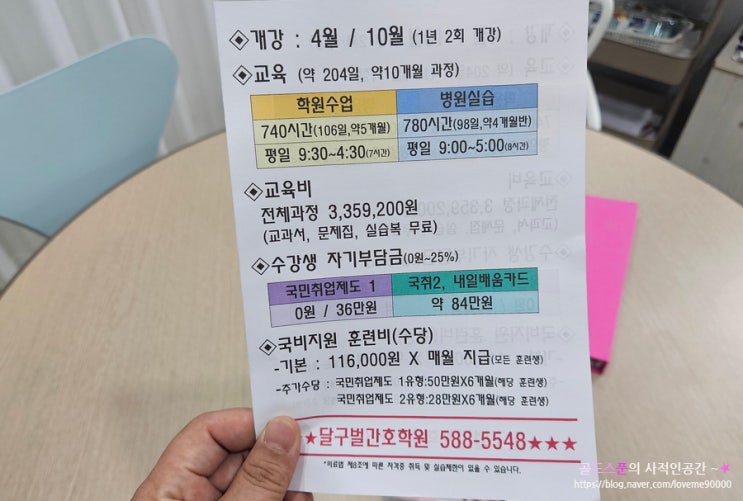 ◈개강 : 4월 / 10월 (1년 2회 개강)
◈교육 (약 204일, 약10개월 과정)
학원수업 병원실습
740시간(106일,약5개월) 780시간(98일,약4개월반)
평일 9:30~4:30(7시간) 평일 9:00~5:00(8시간)
◈교육비
전체과정 3,359,200원
(교과서, 문제집, 실습복 무료)
◈수강생 자기부담금(0원~25%)
국민취업제도 1 국취2, 내일배움카드
0원 / 36만원 약 84만원
◈국비지원 훈련비(수당)
-기본 : 116,000원 X 매월 지급(모든 훈련생)
-추가수당 : 국민취업제도 1유형:50만원X6개월(해당 훈련생)
국민취업제도 2유형:28만원X6개월(해당 훈련생)
★달구벌간호학원 588-5548★★★
*의료법 제8조에 따른 자격증 취득 및 실습제한이 있을 수 있습니다.
골드스푼의 사적인공간 ~★
https://blog.naver.com/loveme90000